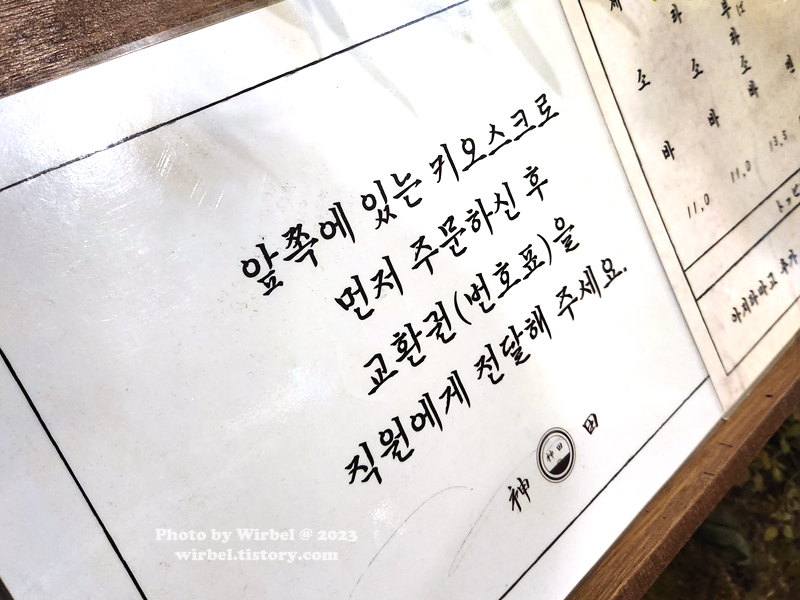 앞쪽에 있는 키오스크로
먼저 주문하신 후
교환권(번호표)을
직원에게 전달해 주세요.
神 神田 田
소 소 소
바 바 바
11.0 11.0 13.5
아지타마고 추가
Photo by Wirbel @ 2023
wirbel.tistory.com